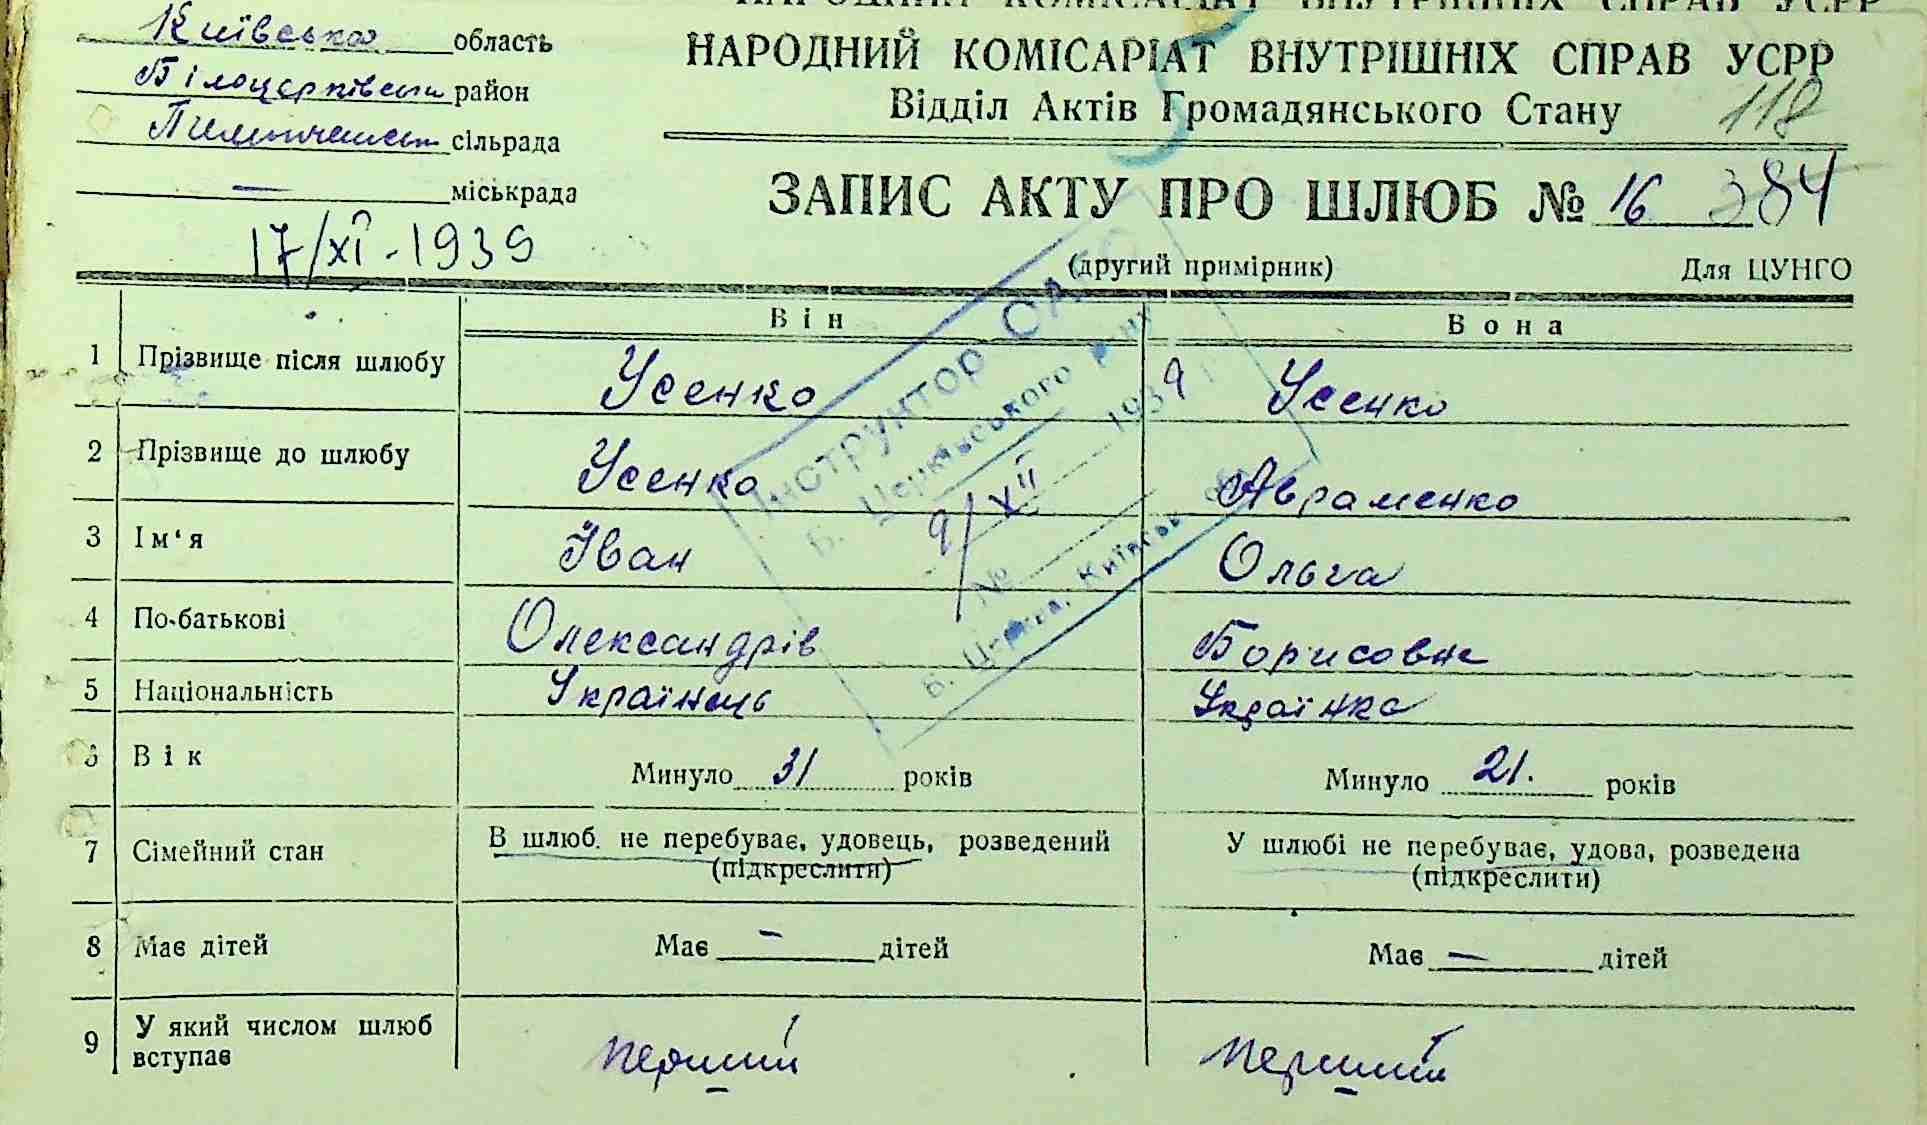 НАРОДНИЙ КОМІСАРІАТ ВНУТРІШНІХ СПРАВ УСРР
Київська область
НАРОДНИЙ КОМІСАРІАТ ВНУТРІШНІХ СПРАВ УСРР
Білоцерківськ район
Відділ Актів Громадянського Стану 118
сільрада
— міськрада
ЗАПИС АКТУ ПРО ШЛЮБ № 16 384
17/XI - 1939
(другий примірник) Для ЦУНГО
Він Вона
1 Прізвище після шлюбу Усенко Усенко
2 Прізвище до шлюбу Усенко Авраменко
3 Ім‘я Іван Ольга
4 По-батькові Олександрів Борисовна
5 Національність Українець Українка
6 Вік Минуло 31 років Минуло 21. років
7 Сімейний стан В шлюб. не перебуває, удовець, розведений У шлюбі не перебуває, удова, розведена
(підкреслити) (підкреслити)
8 Має дітей Має — дітей Має — дітей
9 У який числом шлюб вступає перший перший
Інструктор ОАГС
Б. Церківського р-ну
9/XII 1939 г
№
Б. Церква, Київськ. обл.